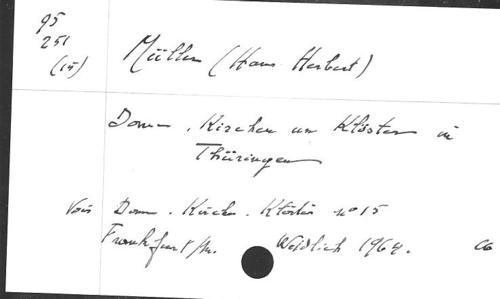 95
251
(15)
Müller (Hans Herbert)
Dome, Kirchen un Klöster in
Thüringen
Vois Dome. Kirche. Klöster n° 15
Frankfurt/M. Weidlich 1964.